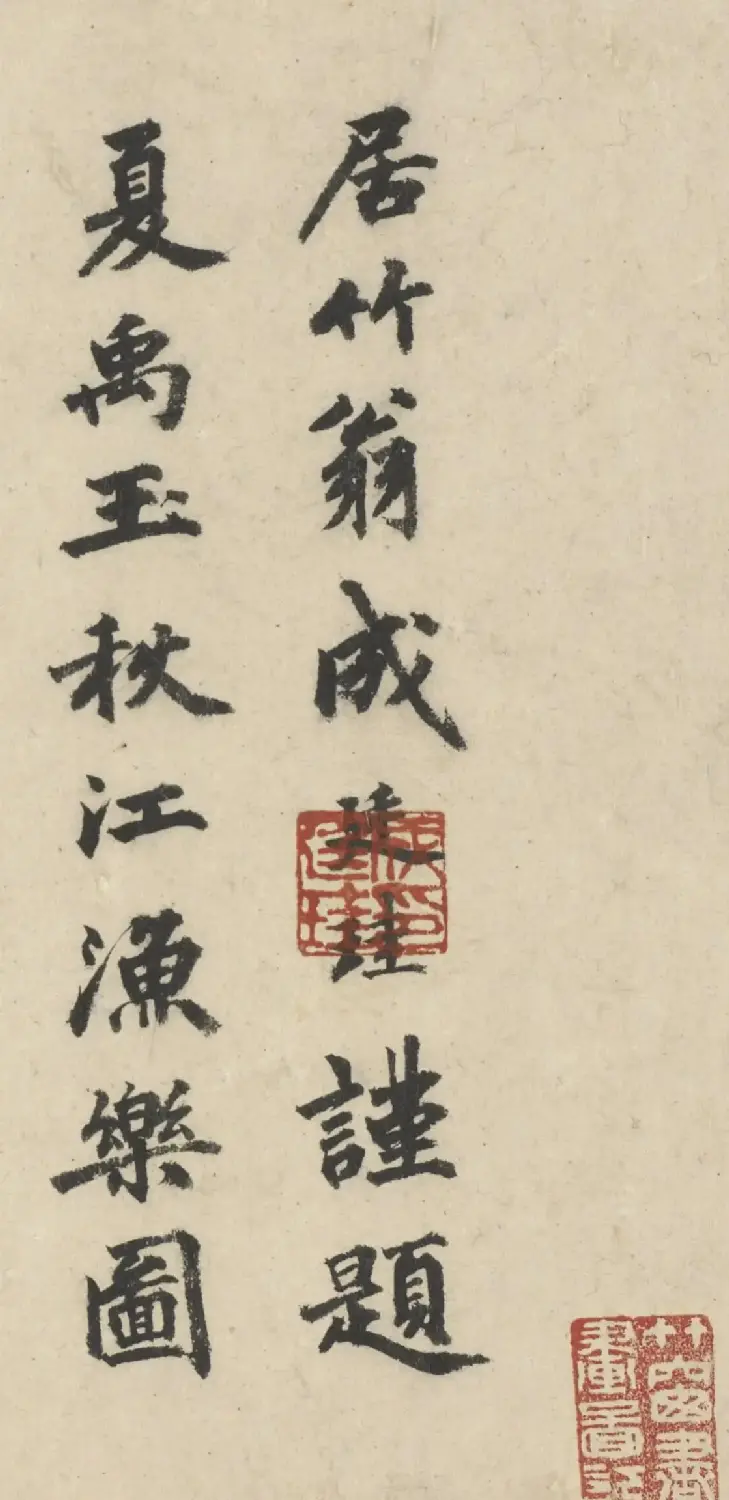 居竹翁成廷珪謹題
夏禹玉秋江漁樂圖